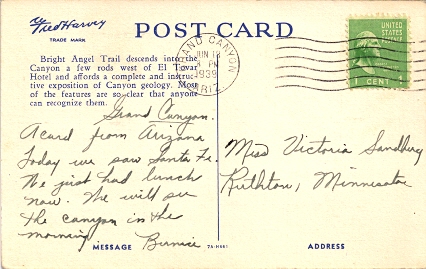 Fred Harvey
TRADE MARK
POST CARD
Bright Angel Trail descends into the
Canyon a few rods west of El Tovar
Hotel and affords a complete and instruc-
tive exposition of Canyon geology. Most
of the features are so clear that anyone
can recognize them.
GRAND CANYON
JUN 12
PM
1939
ARIZ
UNITED
STATES
POSTAGE
1 CENT 1
Grand Canyon.
A card from Arizona
Today we saw Santa Fe.
We just had lunch
now. We will see
the canyon in the
morning
Bernice
Miss Victoria Sandburg
Ruthton, Minnesota
MESSAGE
ADDRESS